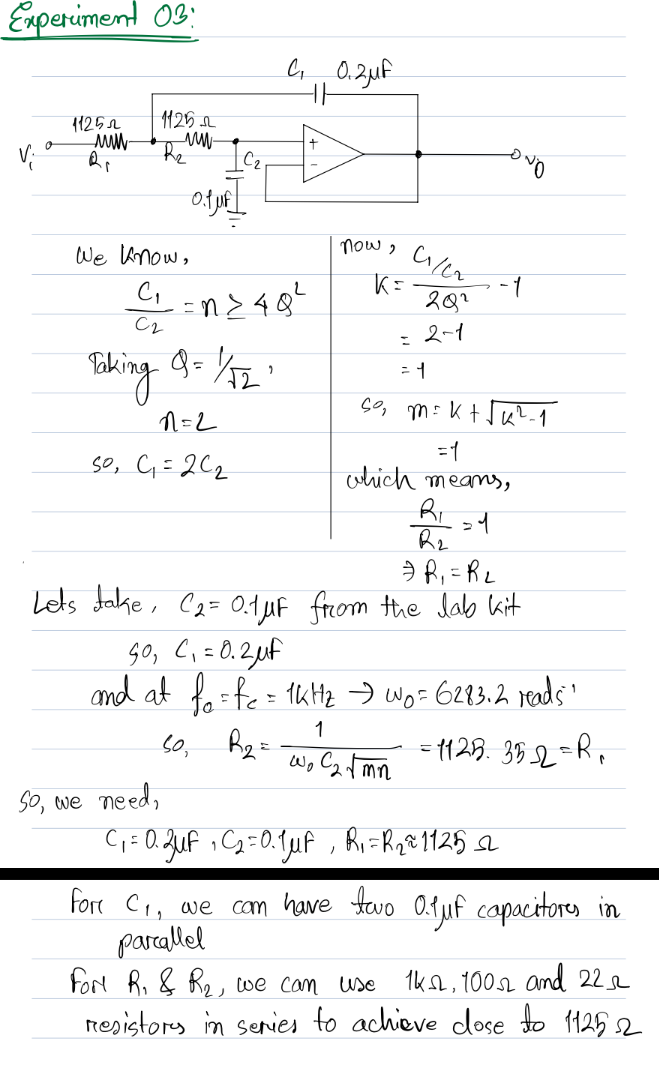 Experiment 03:
C₁ 0.2μF
1125Ω 1125Ω
Vᵢ R₁ R₂ + - C₂ v₀
0.1μF
We know,
C₁/C₂ = n ≥ 4Q²
Taking Q = 1/√2,
n = 2
so, C₁ = 2C₂
now,
K = (C₁/C₂)/(2Q²) - 1
= 2-1
= 1
so, m = K + √(K²-1)
= 1
which means,
R₁/R₂ = 1
⇒ R₁ = R₂
Lets take, C₂ = 0.1μF from the lab kit
so, C₁ = 0.2μF
and at f₀ = f_c = 1kHz → ω₀ = 6283.2 rads⁻¹
so, R₂ = 1/(ω₀ C₂ √mn) = 1125.35Ω = R₁
so, we need,
C₁ = 0.2μF, C₂ = 0.1μF, R₁ = R₂ ≈ 1125 Ω
For C₁, we can have two 0.1μF capacitors in
parallel
For R₁ & R₂, we can use 1kΩ, 100Ω and 22Ω
resistors in series to achieve close to 1125Ω